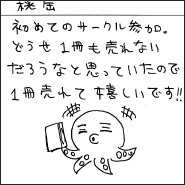 初めてのサークル参加。
どうせ1冊も売れない
だろうなと思っていたので
1冊売れて嬉しいです!!